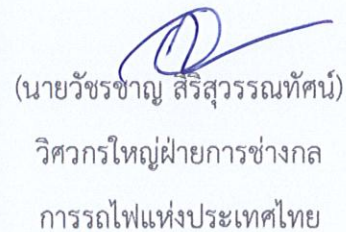 (นายวัชรชาญ สิริสุวรรณทัศน์)
วิศวกรใหญ่ฝ่ายการช่างกล
การรถไฟแห่งประเทศไทย